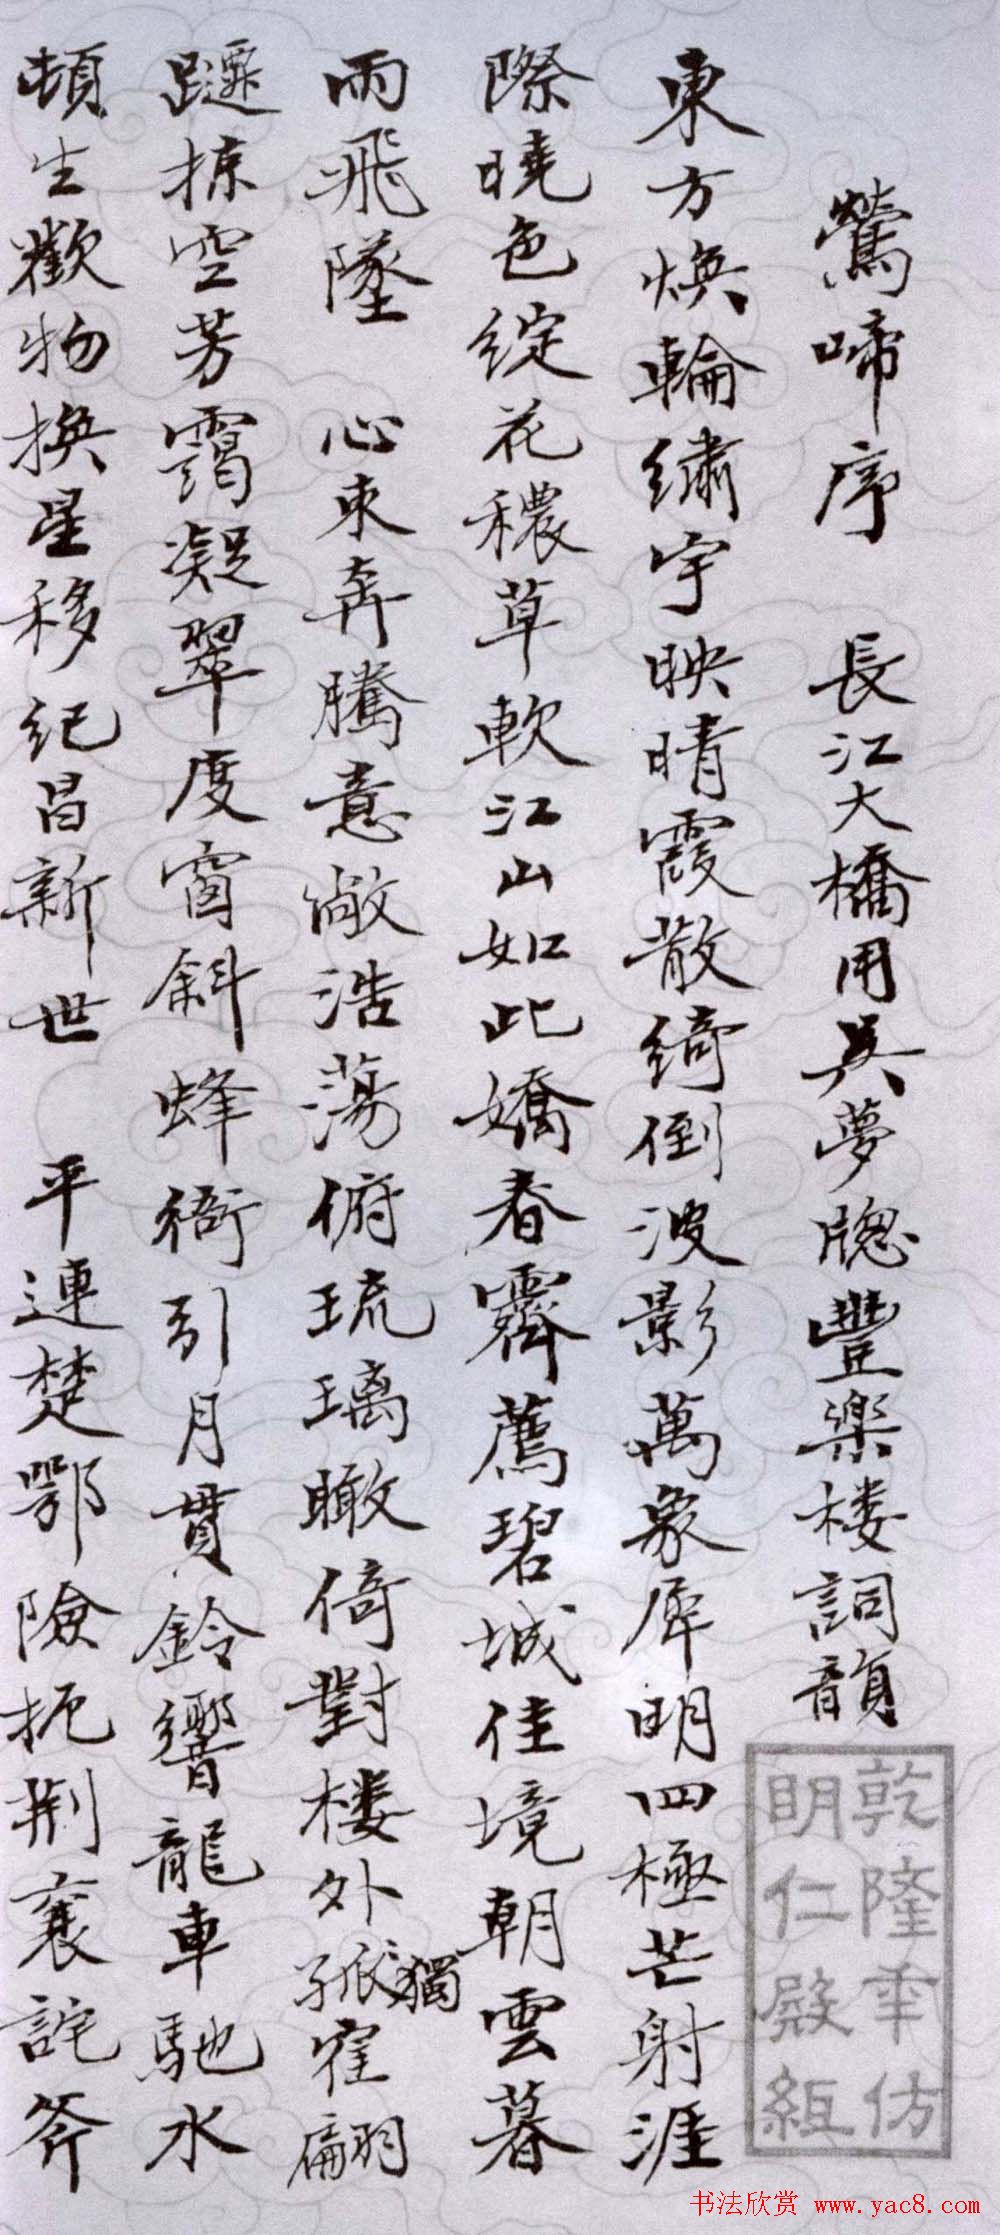 鶯啼序 長江大橋用吳夢牕豐樂楼詞韻
東方煥輪繡宇映晴霞散綺倒波影萬象犀明四極芒射涯
際曉色綻花穠草軟江山如此嬌春霽薦碧城佳境朝雲暮
雨飛墜 心東奔騰意敞浩蕩俯琉璃瞰倚對楼外孤獨寉翩
躚掠空芳靄凝翠度窗斜蜂衙引月貫鈴響龍車馳水
頓生歡物換星移紀昌新世 平連楚鄂險扼荆襄詫斧
乾隆年仿
明仁殿紙
书法欣赏 www.yac8.com